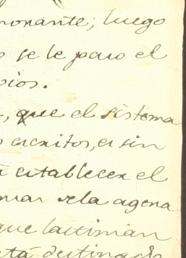 monante; luego
o se le paro el
pios.
, que el sistema
o escritos, es sin
establecer el
mar se la agena
que lastiman
está destinado